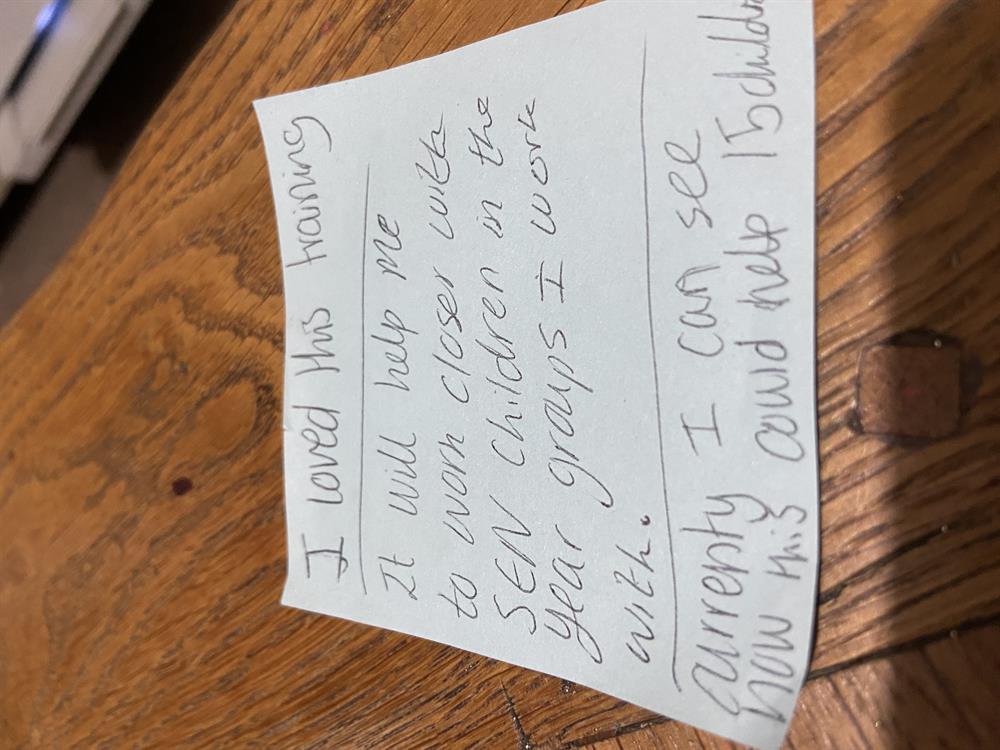 I loved this training
It will help me
to work closer with
SEN children in the
year groups I work
with.
currently I can see
how this could help 15 children